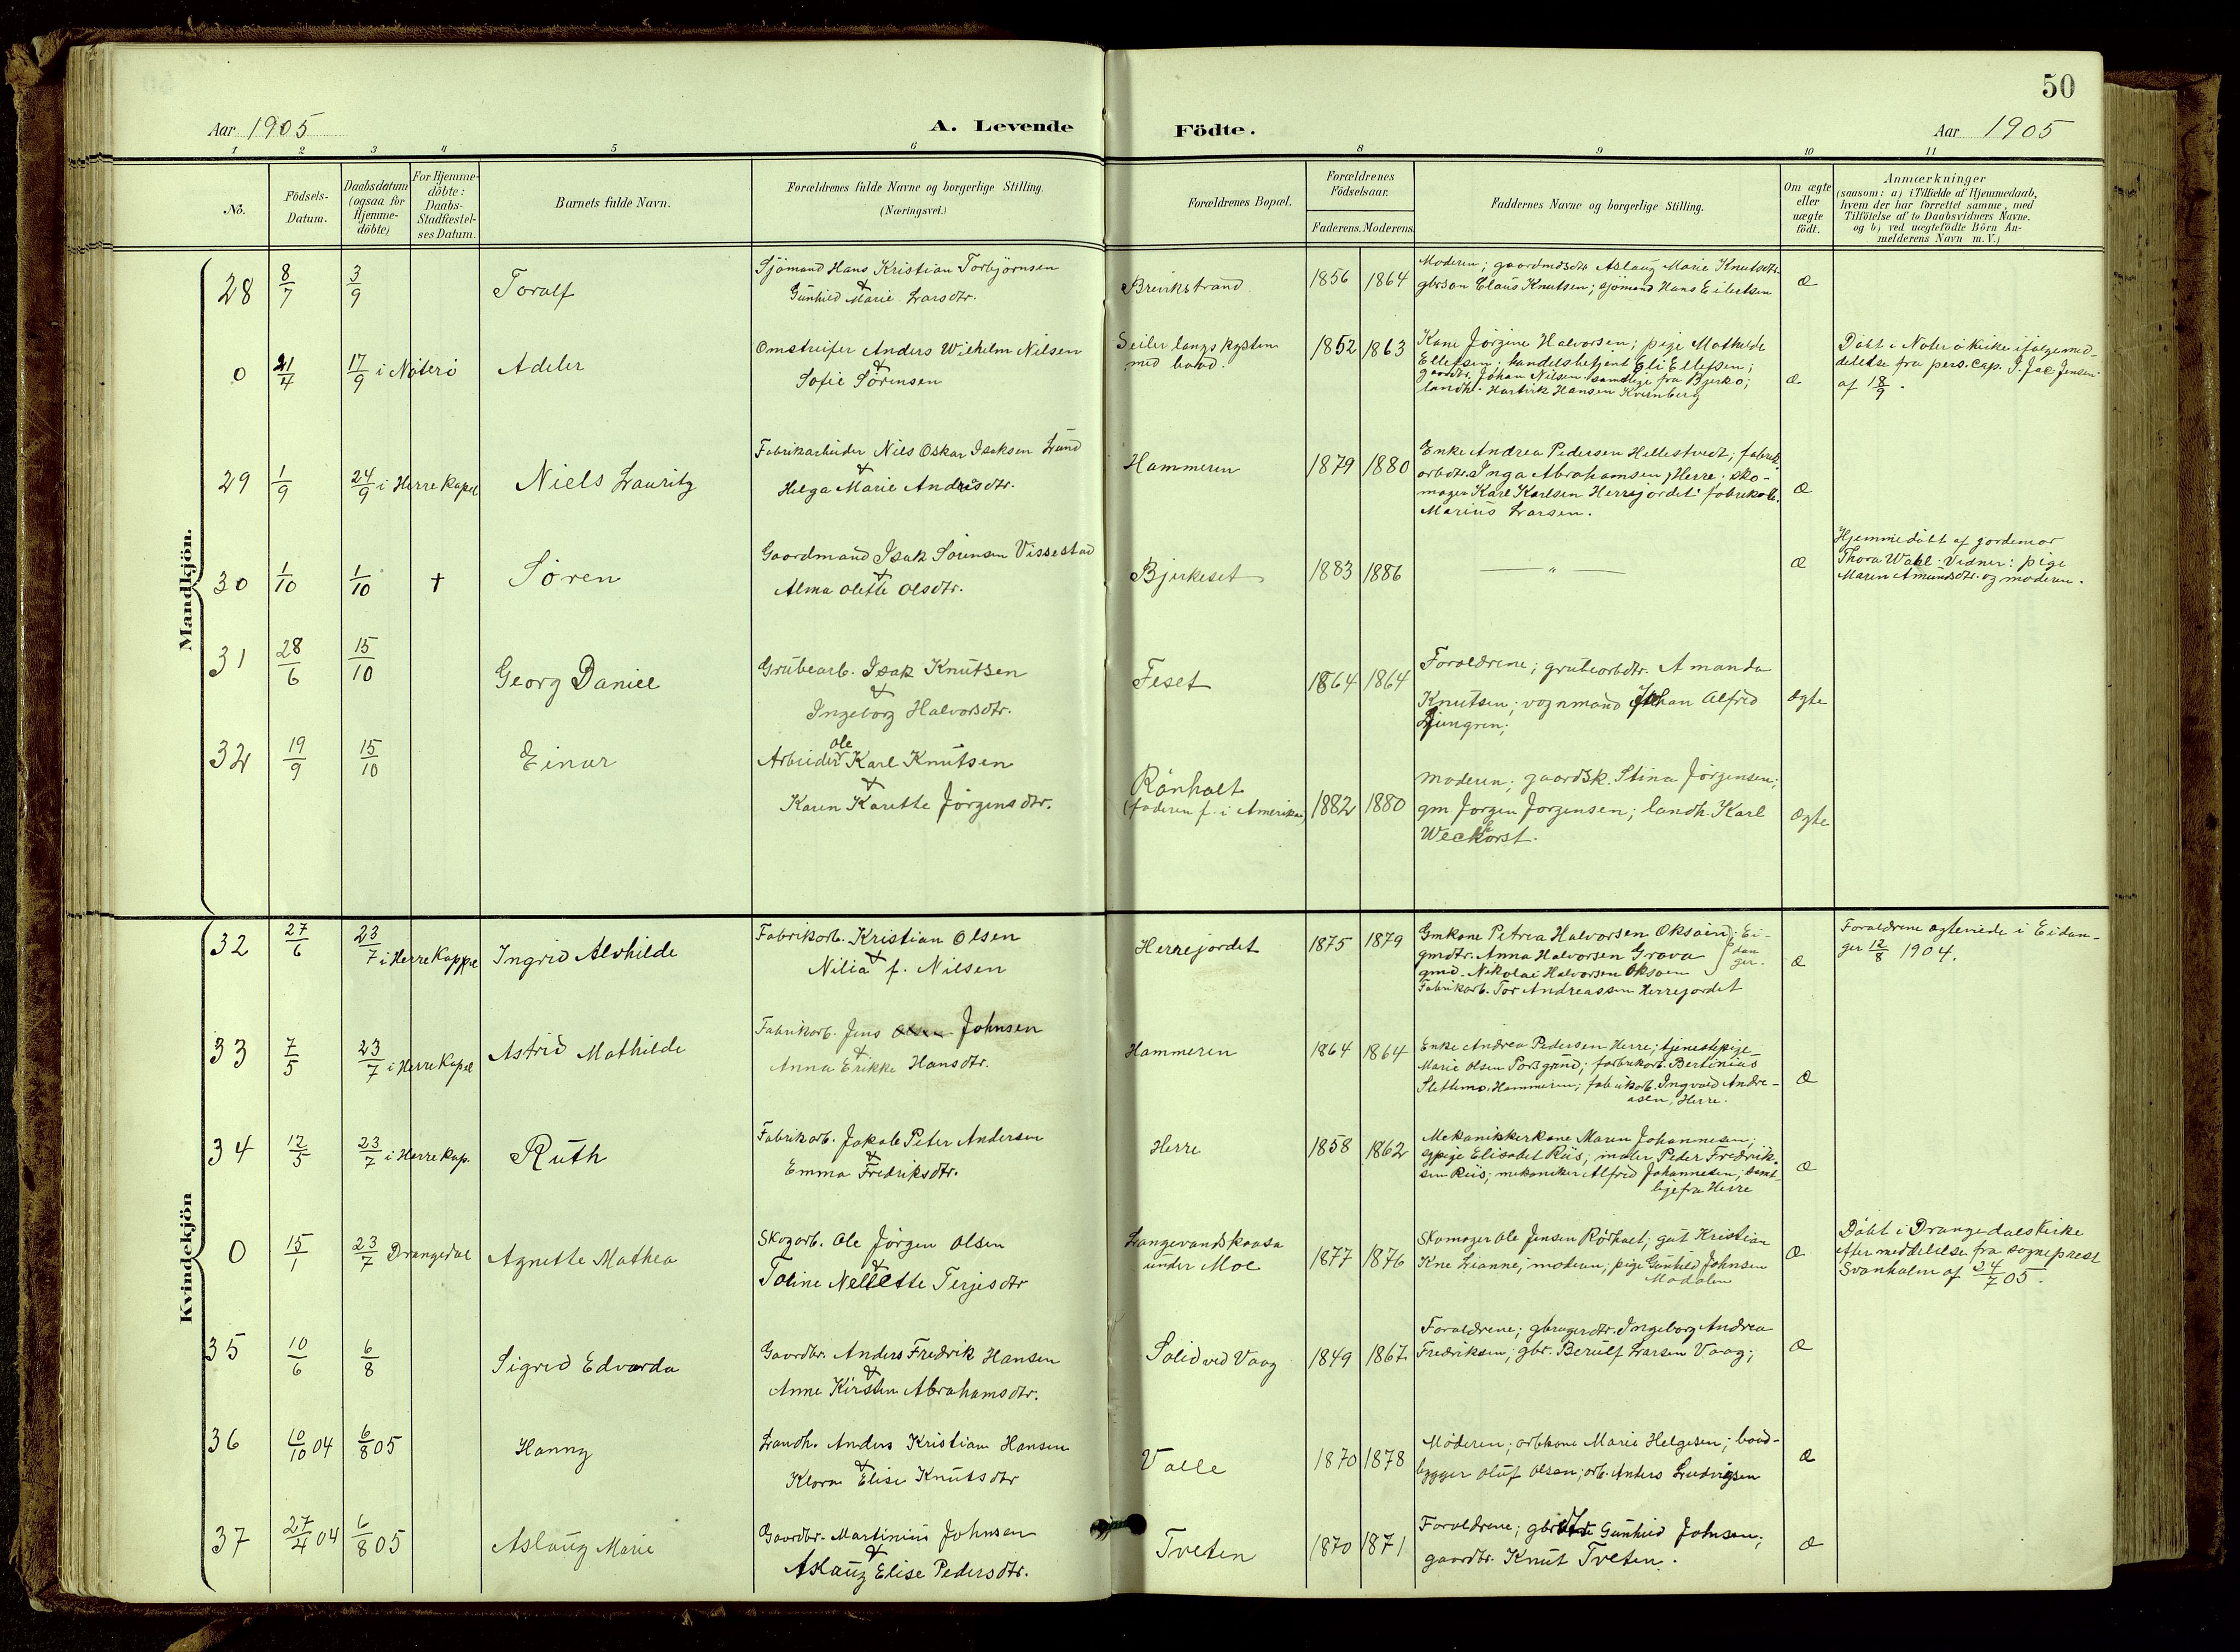 50
Aar 1905 A. Levende Födte. Aar 1905
1 2 3 4 5 6 8 9 10 11
No.
Födsels-
Datum.
Daabsdatum
(ogsaa for
Hjemme-
döbte)
For Hjemme-
döbte:
Daabs-
Stadfæstel-
ses Datum.
Barnets fulde Navn.
Forældrenes fulde Navne og borgerlige Stilling.
(Næringsvei.)
Forældrenes Bopæl.
Forældrenes
Födselsaar.
Faderens. Moderens.
Faddernes Navne og borgerlige Stilling.
Om ægte
eller
uægte
födt.
Anmærkninger
(saasom: a) i Tilfælde af Hjemmedaab,
hvem der har forrettet samme, med
Tilföielse af to Daabsvidners Navne.
og b) ved uægtefödte Börn An-
melderens Navn m.V.)
Mandkjön.
28 8/7 3/9 Toralf
Sjömand Hans Kristian Torbjörnsen
&
Gunhild Marie Larsdtr.
Brevikstrand 1856 1864
Moderen; gaardmdsdtr Aslaug Marie Knutsdtr.
gbrsøn Claus Knutsen; sjömand Hans Eilertsen
æ
0 21/4 17/9 i Nøterö Adeler
Omstreifer Anders Wilhelm Nilsen
&
Sofie Sörensen
Seiler langs kysten
med baad. 1852 1863
Kane Jörgine Halvorsen; pige Mathilde
Ellefsen; handelsbetjent Eli Ellefsen;
gaardbr. Johan Nilsen samtlige fra Bjerkø;
landh. Hartvik Hansen Kvernberg
æ
Døbt i Nøterö kirke ifølge med-
delelse fra pers. cap. I. Jac Jensen
af 18/9.
29 1/9 24/9 i Herre Kapel Niels Lauritz
Fabrikarbeider Nils Oskar Isaksen Lund
&
Helga Marie Andresdtr.
Hammeren 1879 1880
Enke Andrea Pedersen Hellestvedt; fabrik-
arbdtr. Inga Abrahamsen, Herre; sko-
mager Karl Karlsen Herrejordet; fabrikarb.
Marius Larsen.
æ
30 1/10 1/10 † Sören
Gaardmand Isak Sörensen Vissestad
&
Alma Olette Olsdtr.
Bjerkeset 1883 1886
— " —
æ
Hjemmedöbt af jordemor
Thora Wahl. Vidner: pige
Maren Amundsdtr. og moderen.
31 28/6 15/10 Georg Daniel
Grubearb. Isak Knutsen
&
Ingeborg Halvorsdtr.
Feset 1864 1864
Foræeldrene; grubearbdtr. Amanda
Knutsen; vognmand Johan Alfred
Ljungren;
ægte
32 19/9 15/10 Einar
Arbeider Ole Karl Knutsen
&
Karen Karette Jörgensdtr.
Rönholt
(faderen f. i Amerika) 1882 1880
moderen; gaardsk. Stina Jörgensen;
gm Jorgen Jorgensen; landh. Karl
Weckhorst.
ægte
Kvindekjön
32 27/6 23/7 i Herre Kappel Ingrid Alvhilde
Fabrikarb. Kristian Olsen
&
Nilia f. Nilsen
Herrejordet 1875 1879
Gmkone Petrea Halvorsen Oksøien; Ei-
gmdtr. Anna Halvorsen Grava dan
gmd. Nikolai Halvorsen Oksøien ger.
Fabrikarb. Tor Andreassen Herrejordet
æ
Forældrene ægteviede i Eidan-
ger 12/8 1904.
33 7/5 23/7 i Herre Kapel Astrid Mathilde
Fabrikarb. Jens Johnsen
&
Anna Erikke Hansdtr.
Hammeren 1864 1864
Enke Andrea Pedersen Herre; tjenestepige
Marie Olsen Porsgrund; fabrikarb. Bertinius
Slettemo. Hammeren; fabrikarb. Ingvald Andre-
asen, Herre.
æ
34 12/5 23/7 i Herre Kap. Ruth
Fabrikarb. Jakob Peter Andersen
&
Emma Fredriksdtr.
Herre 1858 1862
Mekanikkerkone Maren Johannesen;
sypige Elisabet Riis; maler Peder Fredrik-
sen Riis; mekaniker Alfred Johannesen; samt-
lige fra Herre
æ
0 15/1 23/7 Drangedal Agnette Mathea
Skogarb. Ole Jörgen Olsen
&
Toline Nellette Terjesdtr
Langevandskaasa
under Moe 1877 1876
Skomager Ole Jensen Rörholt; gut Kristian
Kne Lianne; moderen; pige Gunhild Johnsen
Mødalen
æ
Döbt i Drangedals Kirke
efter meddelelse fra sogneprest
Svanholm af 24/7 05.
35 10/6 6/8 Sigrid Edvarda
Gaardbr. Anders Fredrik Hansen
&
Anne Kirsten Abrahamsdtr.
Solid ved Vaag 1849 1867
Forældrene; gbrugerdtr. Ingeborg Andrea
Fredriksen; gbr. Berulf Larsen Vaag;
æ
36 10/10 04 6/8 05 Hanny
Landh. Anders Kristian Hansen
&
Klara Elise Knutsdtr
Valle 1870 1878
Moderen; arbkone Marie Helgesen; baad-
bygger Oluf Olsen; arb. Anders Ludvigsen
æ
37 27/4 04 6/8 05 Aslaug Marie
Gaardbr. Martinius Johnsen
&
Aslaug Elise Pedersdtr.
Tveten 1870 1871
Forældrene; gbrdtr Gunhild Johnsen;
gaardbr. Knut Tveten.
æ